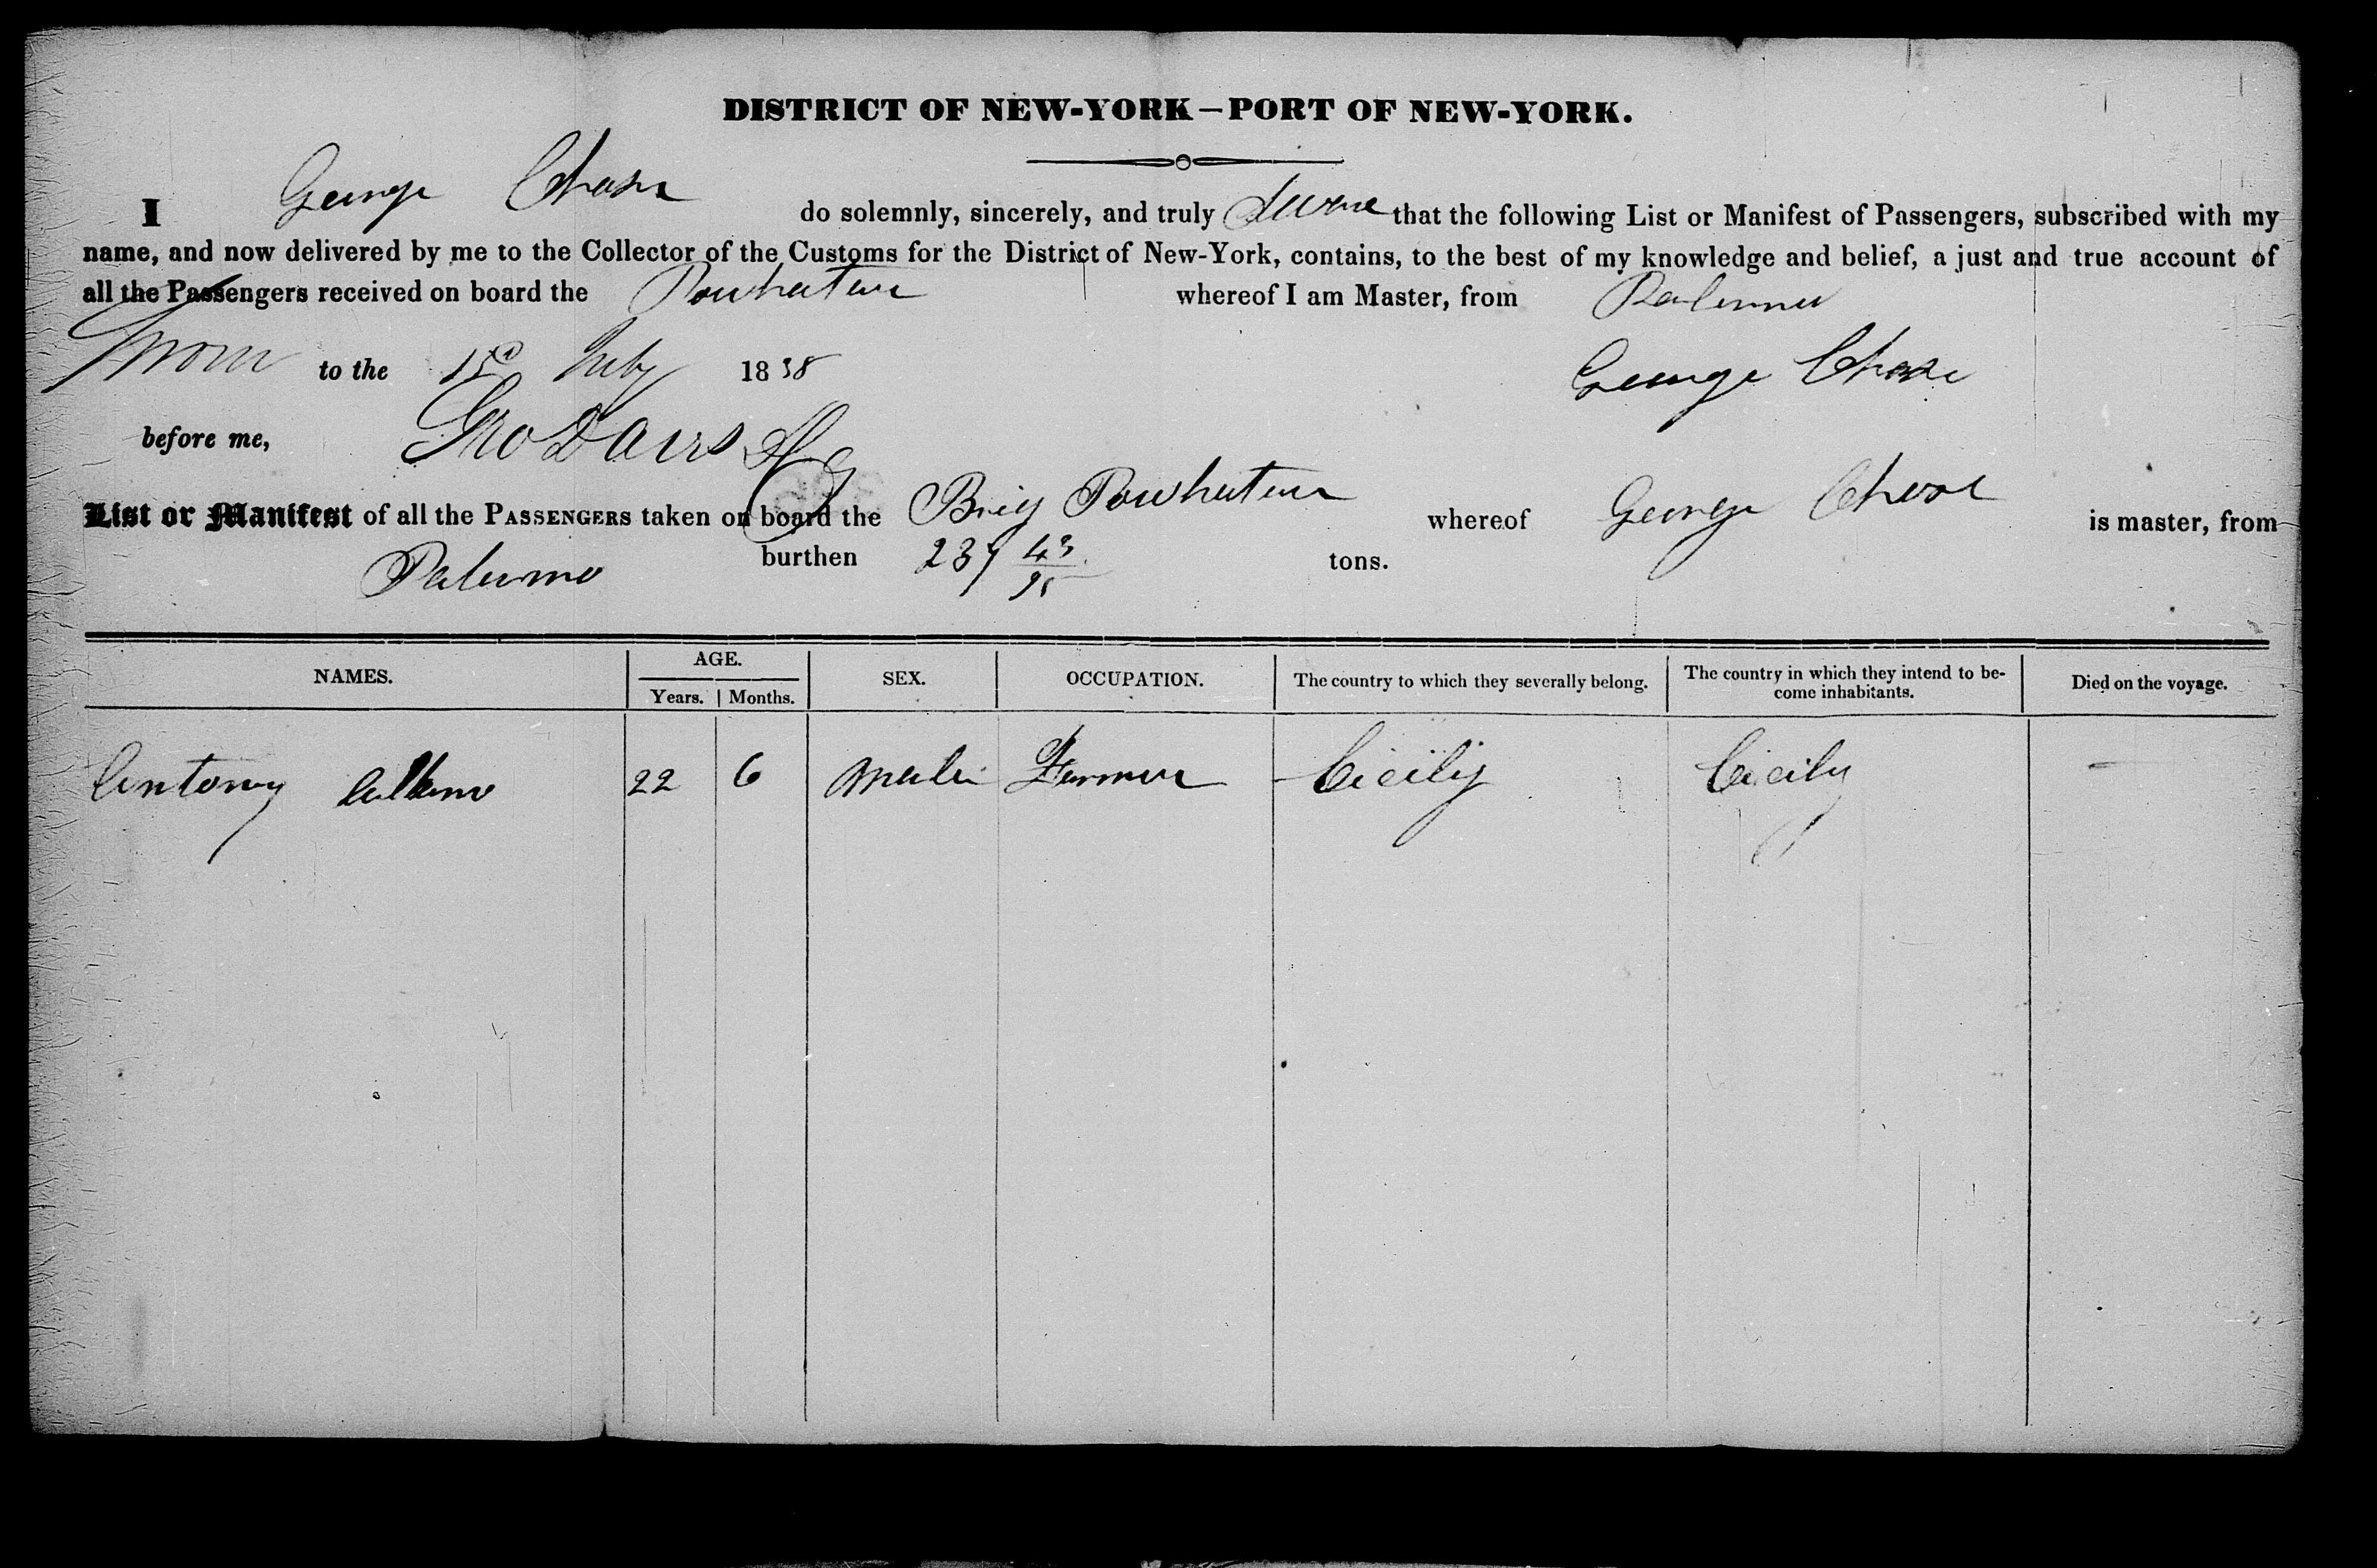 DISTRICT OF NEW-YORK—PORT OF NEW-YORK.
I George Chase do solemnly, sincerely, and truly Swear that the following List or Manifest of Passengers, subscribed with my
name, and now delivered by me to the Collector of the Customs for the District of New-York, contains, to the best of my knowledge and belief, a just and true account of
all the Passengers received on board the Powhatan whereof I am Master, from Palermo
Sworn to the July 1838 George Chase
before me, Geo Davis
List or Manifest of all the PASSENGERS taken on board the Brig Powhatan whereof George Chase is master, from
Palermo burthen 237 43/95 tons.
NAMES. AGE. Years. Months. SEX. OCCUPATION. The country to which they severally belong. The country in which they intend to be-
come inhabitants. Died on the voyage.
Antony 22 6 male Farmer Cicily Cicily —